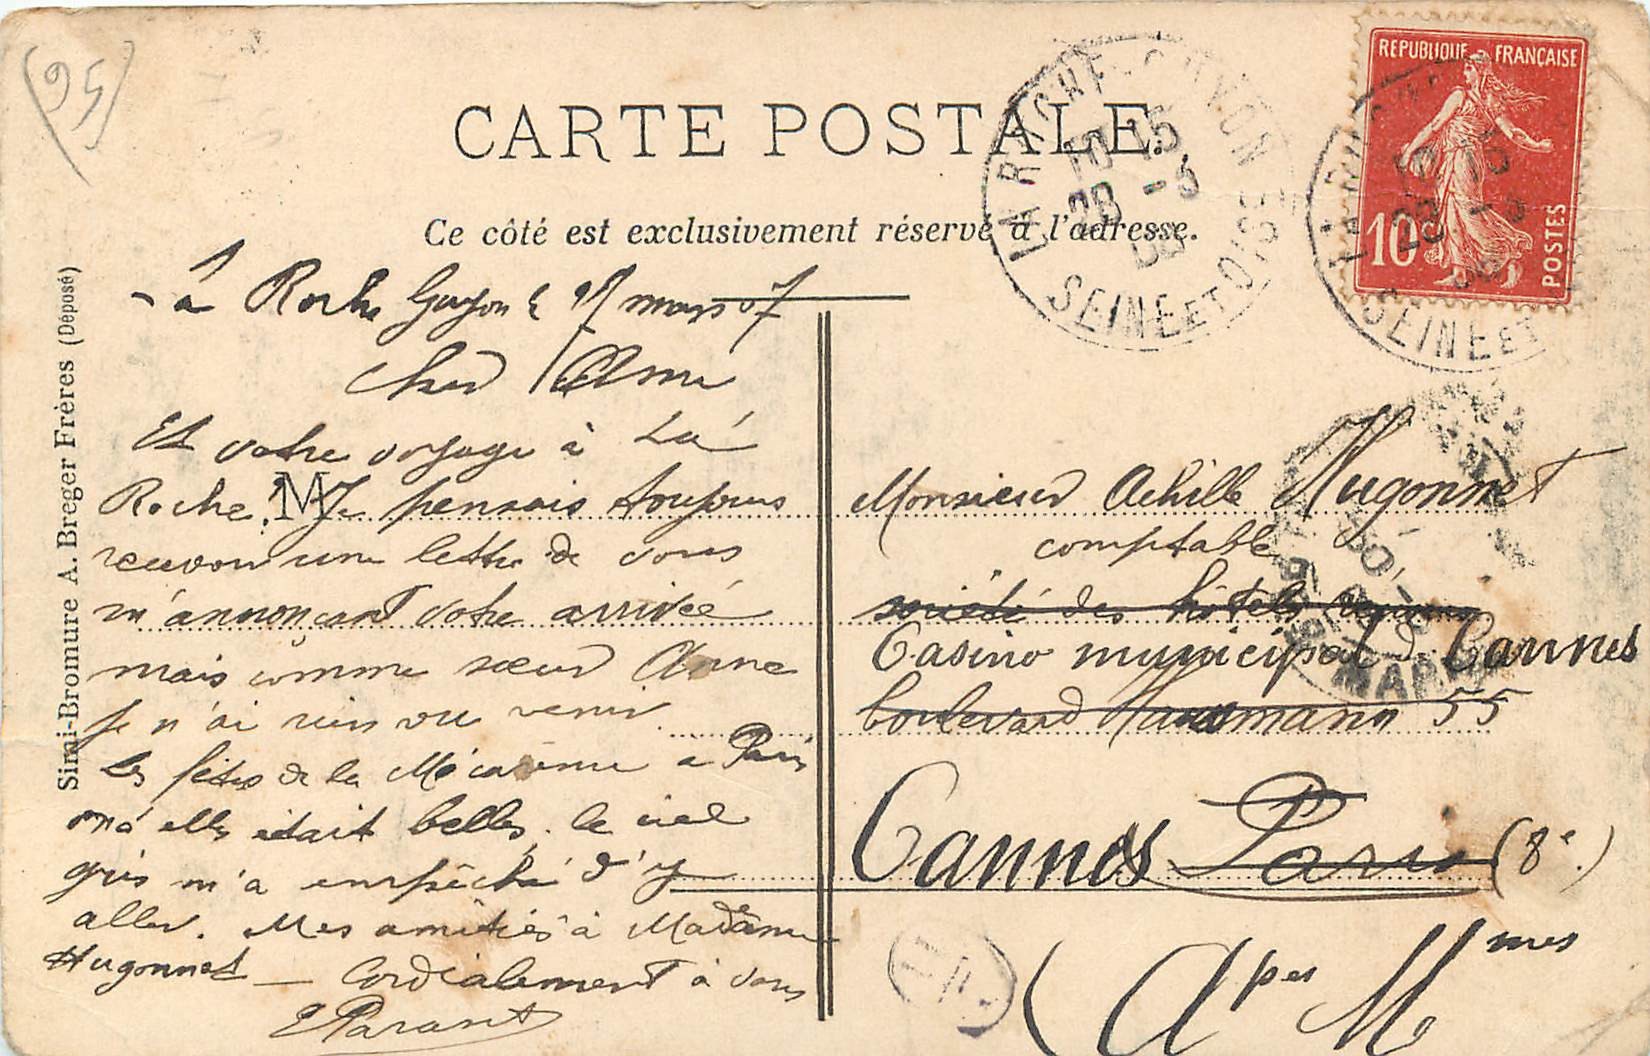 (95)
CARTE POSTALE.
Ce côté est exclusivement réservé à l'adresse.
REPUBLIQUE FRANÇAISE
10
POSTES
LA ROCHE-GUYON
10 15
28 -3
SEINE ET OISE
LA ROCHE
10 15
28 -3
SEINE ET
Simi-Bromure A. Breger Frères (Déposé)
La Roche Guyon mars 07
Cher
Et votre voyage à La
Roche. ? Je pensais toujours
M
recevoir une lettre de vous
m'annonçant votre arrivée
mais comme sœur Anne
je n'ai rien vu venir.
Les fêtes de la Mi carême a Paris
elles était belles. le ciel
gris m'a empêché d'y
aller. Mes amitiés à Madame
Hugonnet — Cordialement à vous
E Parant
Monsieur Achille Hugonnet
comptable
société des hôtels réunis
Casino municipal de Cannes
boulevard Haussmann 55
Cannes Paris (8e.)
(Apes Mmes